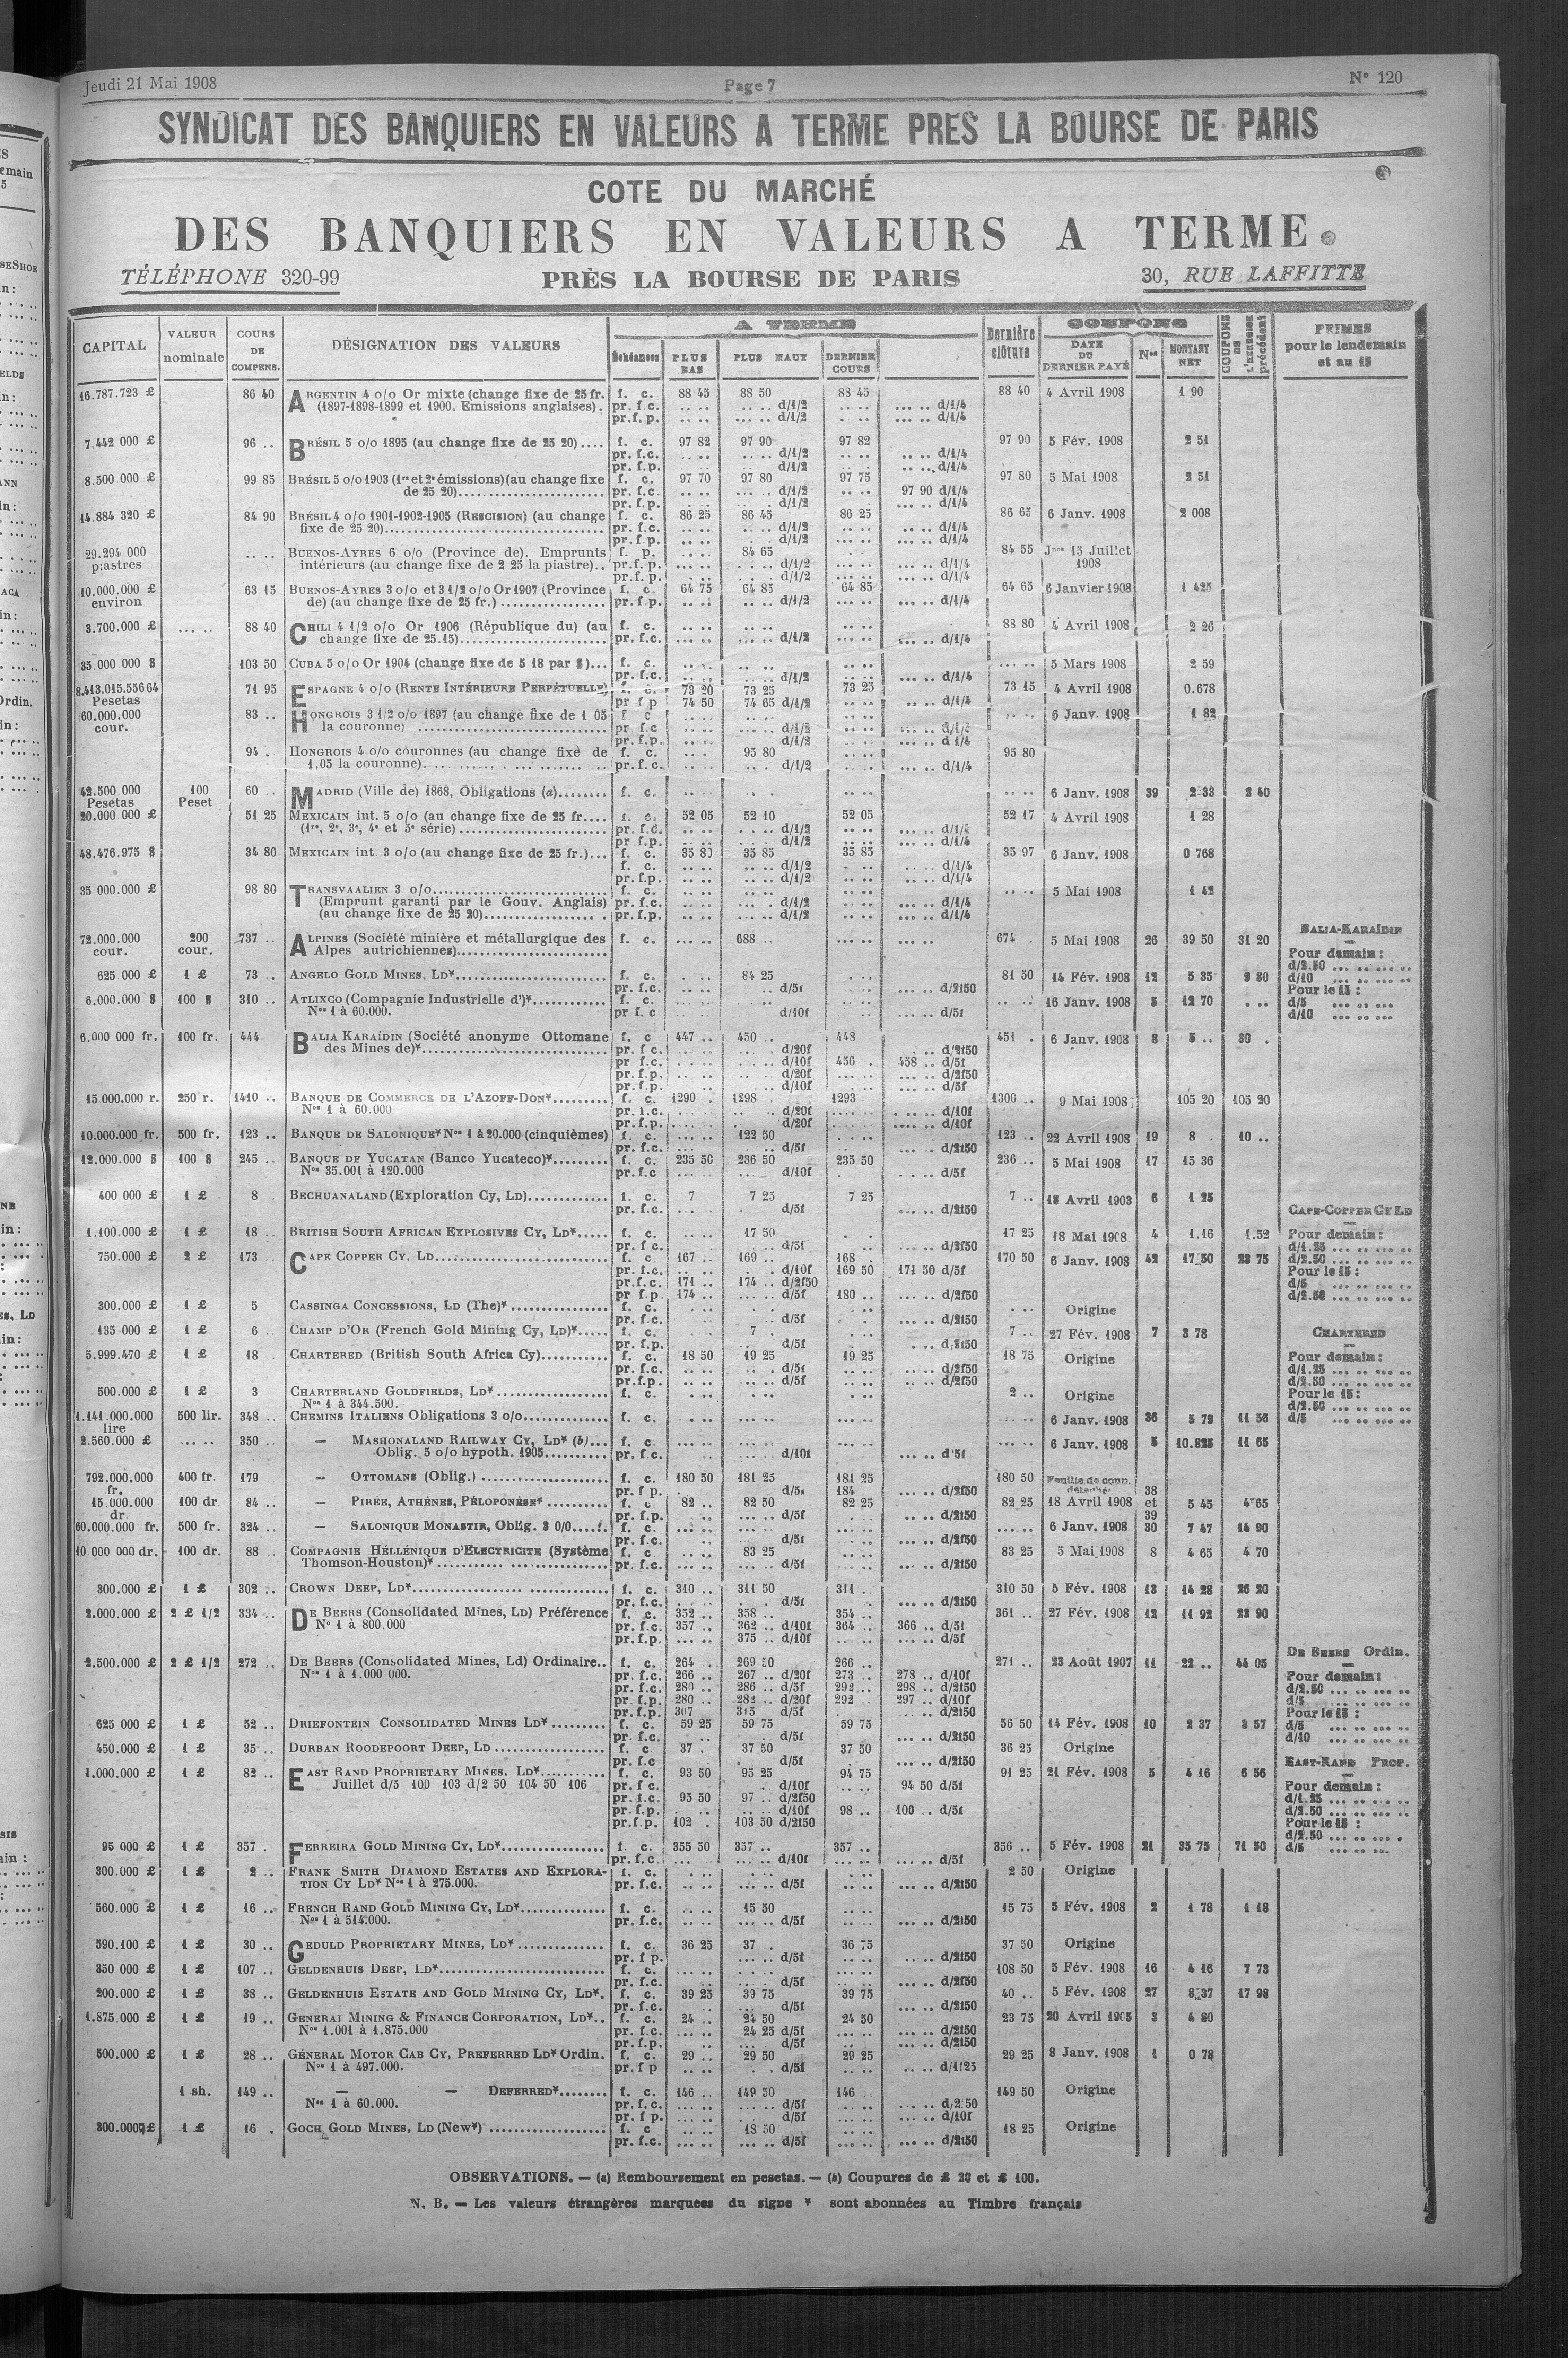 Jeudi 21 Mai 1908 Page 7 N° 120
SYNDICAT DES BANQUIERS EN VALEURS A TERME PRES LA BOURSE DE PARIS
COTE DU MARCHÉ
DES BANQUIERS EN VALEURS A TERME
TÉLÉPHONE 320-99 PRÈS LA BOURSE DE PARIS 30, RUE LAFFITTE
CAPITAL VALEUR nominale COURS DE COMPENS. DÉSIGNATION DES VALEURS A TERME Échéances PLUS BAS PLUS HAUT DERNIER COURS Dernière clôture COUPONS DATE DU DERNIER PAYÉ Nos MONTANT NET COUPONS DE L'EXERCICE précédent PRIMES pour le lendemain et au 15
16.787.723 £ 86 40 ARGENTIN 4 o/o Or mixte (change fixe de 25 fr. f. c. 88 45 88 50 88 45 88 40 4 Avril 1908 1 90
(1897-1898-1899 et 1900. Emissions anglaises). pr. f.c. d/1/2 d/1/4
pr.f. p. d/1/2 d/1/4
7.442 000 £ 96 .. BRÉSIL 5 o/o 1895 (au change fixe de 25 20).... f. c. 97 82 97 90 97 82 97 90 5 Fév. 1908 2 51
pr. f.c. d/1/2 d/1/4
pr. f.p. d/1/2 d/1/4
8.500.000 £ 99 85 BRÉSIL 5 o/o 1903 (1re et 2e émissions)(au change fixe f. c. 97 70 97 80 97 75 97 80 5 Mai 1908 2 51
de 25 20) pr. f.c. d/1/2 97 90 d/1/4
pr. f.p. d/1/2 d/1/4
14.884 320 £ 84 90 BRÉSIL 4 o/o 1901-1902-1905 (RESCISION) (au change f. c. 86 25 86 45 86 25 86 65 6 Janv. 1908 2 008
fixe de 25 20) pr. f.c. d/1/2 d/1/4
pr. f.p. d/1/2 d/1/4
29.294 000 BUENOS-AYRES 6 o/o (Province de). Emprunts f. p. 84 65 84 55 Jnce 15 Juillet
piastres intérieurs (au change fixe de 2 25 la piastre).. pr.f. p. d/1/2 d/1/4 1908
pr. f.p. d/1/2 d/1/4
10.000.000 £ 63 15 BUENOS-AYRES 3 o/o et 3 1/2 o/o Or 1907 (Province f. c. 64 75 64 85 64 85 64 65 6 Janvier 1908 1 425
environ de) (au change fixe de 25 fr.) pr. f.p. d/1/2 d/1/4
3.700.000 £ 88 40 CHILI 4 1/2 o/o Or 1906 (République du) (au f. c. 88 80 4 Avril 1908 2 26
change fixe de 25.15) pr. f.c. d/1/2 d/1/4
35.000 000 $ 103 50 CUBA 5 o/o Or 1904 (change fixe de 5 18 par $)... f. c. 5 Mars 1908 2 59
pr. f.c. d/1/2 d/1/4
8.413.015.556 64 71 95 ESPAGNE 4 o/o (RENTE INTÉRIEURE PERPÉTUELLE) f. c. 73 20 73 25 73 25 73 15 4 Avril 1908 0.678
Pesetas pr f p 74 50 74 65 d/1/2 d/1/4
60.000.000 83 .. HONGROIS 3 1/2 o/o 1897 (au change fixe de 1 05 f c 6 Janv. 1908 1 82
cour. la couronne) pr f.c d/1/2 d/1/4
pr. f.p. d/1/2 d 1/4
94 . HONGROIS 4 o/o couronnes (au change fixe de f. c. 95 80 95 80
1,05 la couronne) pr. f.c. d/1/2 d/1/4
42.500 000 Pesetas 100 Peset 60 .. MADRID (Ville de) 1868, Obligations (a) f. c. 6 Janv. 1908 39 2 33 2 40
20.000 000 £ 51 25 MEXICAIN int. 5 o/o (au change fixe de 25 fr.... f. c. 52 05 52 10 52 05 52 17 4 Avril 1908 1 28
(1re, 2e, 3e, 4e et 5e série) pr. f.c. d/1/2 d/1/4
pr f.p. d/1/2 d/1/4
48.476.975 $ 34 80 MEXICAIN int. 3 o/o (au change fixe de 25 fr.)... f. c. 35 80 35 85 35 85 35 97 6 Janv. 1908 0 768
f. c. d/1/2 d/1/4
pr. f.p. d/1/2 d/1/4
35 000.000 £ 98 80 TRANSVAALIEN 3 o/o f. c. 5 Mai 1908 1 42
(Emprunt garanti par le Gouv. Anglais) pr. f.c. d/1/2 d/1/4
(au change fixe de 25 20) pr. f.p. d/1/2 d/1/4
72.000.000 cour. 200 cour. 737 .. ALPINES (Société minière et métallurgique des f. c. 688 .. 674 . 5 Mai 1908 26 39 50 31 20 BALIA-KARAÏDIN
Alpes autrichiennes) Pour demain :
625 000 £ 1 £ 73 .. ANGELO GOLD MINES, LD* f. c. 84 25 81 50 14 Fév. 1908 12 5 35 9 80 d/2.50 d/10
pr. f.c. d/5f d/2f50 Pour le 15 :
6.000.000 $ 100 $ 310 .. ATLIXCO (Compagnie Industrielle d')* f. c. 16 Janv. 1908 5 12 70 d/5
Nos 1 à 60.000. pr f.c d/10f d/5f d/10
6.000 000 fr. 100 fr. 444 BALIA KARAÏDIN (Société anonyme Ottomane f. c 447 .. 450 .. 448 451 . 6 Janv. 1908 8 5 .. 30 .
des Mines de)* pr. f c. d/20f d/2f50
pr f.c. d/10f 456 . 458 .. d/5f
pr. f.p. d/20f d/2f50
pr. f.p. d/10f d/5f
15 000.000 r. 250 r. 1410 .. BANQUE DE COMMERCE DE L'AZOFF-DON* f. c. 1290 . 1298 . 1293 1300 .. 9 Mai 1908 105 20 105 20
Nos 1 à 60.000 pr. f.c. d/20f d/10f
pr. f.p. d/20f d/10f
10.000.000 fr. 500 fr. 123 .. BANQUE DE SALONIQUE* Nos 1 à 20.000 (cinquièmes) f. c. 122 50 123 .. 22 Avril 1908 19 8 . 10 ..
pr. f.c. d/5f d/2f50
12.000.000 $ 100 $ 245 .. BANQUE DE YUCATAN (Banco Yucateco)* f. c. 235 50 236 50 235 50 236 .. 5 Mai 1908 17 15 36
Nos 35.001 à 120.000 pr. f.c d/10f d/5f
400 000 £ 1 £ 8 BECHUANALAND (Exploration Cy, LD) f. c. 7 7 25 7 25 7 .. 18 Avril 1903 6 1 25
pr. f.c. d/5f d/2f50 CAPE-COPPER CY LD
1.100.000 £ 1 £ 18 BRITISH SOUTH AFRICAN EXPLOSIVES CY, LD* f. c. 17 50 17 25 18 Mai 1908 4 1.16 1.52 Pour demain :
pr. f c. d/5f d/2f50 d/1.25
750.000 £ 2 £ 173 CAPE COPPER CY, LD f. c 167 .. 169 .. 168 . 170 50 6 Janv. 1908 42 17 50 23 75 d/2.50
pr. f.c. d/10f 169 50 171 50 d/5f Pour le 15 :
pr.f.c. 171 .. 174 .. d/2f50 d/5
pr f.p. 174 .. d/5f 180 .. d/2f50 d/2.50
300.000 £ 1 £ 5 CASSINGA CONCESSIONS, LD (The)* f. c. Origine
pr. f.c. d/5f d/2f50
135 000 £ 1 £ 6 CHAMP D'OR (French Gold Mining Cy, LD)* f. c. 7 . 7 .. 27 Fév. 1908 7 3 78 CHARTERED
pr. f.p. d/5f d/2f50
5.999.470 £ 1 £ 18 CHARTERED (British South Africa Cy) f. c. 18 50 19 25 19 25 18 75 Origine Pour demain :
pr. f.c. d/5f d/2f50 d/1.25
pr.f.p. d/5f d/2f50 d/2.50
500.000 £ 1 £ 3 CHARTERLAND GOLDFIELDS, LD* f. c. 2 .. Origine Pour le 15 :
Nos 1 à 344.500. d/2.50
1.141.000.000 lire 500 lir. 348 .. CHEMINS ITALIENS Obligations 3 o/o f. c. 6 Janv. 1908 36 5 79 11 56 d/5
2.560.000 £ 350 .. — MASHONALAND RAILWAY CY, LD* (b)... f. c. 6 Janv. 1908 5 10.825 11 65
Oblig. 5 o/o hypoth. 1905 pr. f.c. d/10f d'5f
792.000.000 fr. 400 fr. 179 — OTTOMANS (Oblig.) f. c. 180 50 181 25 181 25 180 50 Feuille de coup. détachée
pr. f p. d/5f 184 d/2f50 38
15.000.000 dr. 100 dr. 84 .. — PIRÉE, ATHÈNES, PÉLOPONÈSE* f. c. 82 .. 82 50 82 25 82 25 18 Avril 1908 et 5 45 4 65
pr. f.p. d/5f d/2f50 39
60.000.000 fr. 500 fr. 324 .. — SALONIQUE MONASTIR, Oblig. 3 0/0 f. c. 6 Janv. 1908 30 7 47 14 90
pr. f.c. d/5f d/2f50
10 000 000 dr. 100 dr. 88 .. COMPAGNIE HÉLLÉNIQUE D'ELECTRICITE (Système f. c 83 25 83 25 5 Mai 1908 8 4 65 4 70
Thomson-Houston)* pr. f.c. d/5f d/2f50
300.000 £ 1 £ 302 .. CROWN DEEP, LD* f. c. 310 .. 311 50 311 . 310 50 5 Fév. 1908 13 14 28 26 20
pr. f.c. d/5f d/2f50
2.000.000 £ 2 £ 1/2 334 .. DE BEERS (Consolidated Mines, LD) Préférence f. c. 352 .. 358 .. 354 .. 361 .. 27 Fév. 1908 12 11 92 23 90
N° 1 à 800.000 pr. f.c. 357 . 362 .. d/10f 364 .. 366 .. d/5f
pr. f.p. 375 .. d/10f d/5f
2.500.000 £ 2 £ 1/2 272 .. DE BEERS (Consolidated Mines, Ld) Ordinaire.. f. c. 264 . 269 50 266 .. 271 .. 23 Août 1907 11 22 .. 44 05 DE BEERS Ordin.
Nos 1 à 1.000 000. pr. f.c. 266 .. 267 .. d/20f 273 .. 278 .. d/10f Pour demain :
pr. f.c. 280 .. 286 .. d/5f 292 .. 298 .. d/2f50 d/2.50
pr. f.p. 280 .. 282 .. d/20f 292 .. 297 .. d/10f d/5
pr. f.p. 307 315 d/5f d/2f50 Pour le 15 :
625 000 £ 1 £ 52 .. DRIEFONTEIN CONSOLIDATED MINES LD* f. c. 59 25 59 75 59 75 56 50 14 Fév. 1908 10 2 37 3 57 d/5
pr. f.c. d/5f d/2f50 d/10
450.000 £ 1 £ 35 .. DURBAN ROODEPOORT DEEP, LD f. c 37 . 37 50 37 50 36 25 Origine
pr. f.c d/5f d/2f50 EAST-RAND PROP.
1.000.000 £ 1 £ 82 .. EAST RAND PROPRIETARY MINES, LD* f. c. 93 50 95 25 94 75 91 25 21 Fév. 1908 5 4 16 6 56
Juillet d/5 100 103 d/2 50 104 50 106 pr. f c. d/10f 94 50 d/5f Pour demain :
pr. f.c. 95 50 97 .. d/2f50 d/1.25
pr. f.p. d/10f 98 .. 100 .. d/5f d/2.50
pr.f.p. 102 . 103 50 d/2f50 Pour le 15 :
d/2.50
95 000 £ 1 £ 357 . FERREIRA GOLD MINING CY, LD* f. c. 355 50 357 .. 357 .. 356 .. 5 Fév. 1908 21 35 75 71 50 d/5
pr. f.c. d/10f d/5f
300.000 £ 1 £ 2 .. FRANK SMITH DIAMOND ESTATES AND EXPLORA- f. c. 2 50 Origine
TION CY LD* Nos 1 à 275.000. pr. f.c. d/5f d/2f50
560.000 £ 1 £ 16 .. FRENCH RAND GOLD MINING CY, LD* f. c. 15 50 15 75 5 Fév. 1908 2 1 78 1 18
Nos 1 à 514.000. pr. f.c. d/5f d/2f50
590.100 £ 1 £ 30 .. GEDULD PROPRIETARY MINES, LD* f. c. 36 25 37 . 36 75 37 50 Origine
pr. f p. d/5f d/2f50
350 000 £ 1 £ 107 .. GELDENHUIS DEEP, LD* f. c. 108 50 5 Fév. 1908 16 4 16 7 73
pr. f.c. d/5f d/2f50
200.000 £ 1 £ 38 .. GELDENHUIS ESTATE AND GOLD MINING CY, LD*. f. c. 39 25 39 75 39 75 40 .. 5 Fév. 1908 27 8 37 17 98
pr. f.c. d/5f d/2f50
1.875.000 £ 1 £ 19 .. GENERAL MINING & FINANCE CORPORATION, LD*.. f. c. 24 .. 24 50 24 50 23 75 20 Avril 1905 3 4 80
Nos 1.001 à 1.875.000 pr. f.c. 24 25 d/5f d/2f50
pr. f.p. d/5f d/2f50
500.000 £ 1 £ 28 .. GÉNERAL MOTOR CAB CY, PREFERRED LD* Ordin. f. c. 29 .. 29 50 29 25 29 25 8 Janv. 1908 1 0 78
Nos 1 à 497.000. pr. f p d/5f d/1f25
1 sh. 149 .. — — DEFERRED* f. c. 146 .. 149 50 146 149 50 Origine
Nos 1 à 60.000. pr. f.c. d/5f d/2f50
pr. f p. d/5f d/10f
300.000 £ 1 £ 16 . GOCH GOLD MINES, LD (New*) f. c 18 50 18 25 Origine
pr. f.c. d/5f d/2f50
OBSERVATIONS. — (a) Remboursement en pesetas. — (b) Coupures de £ 20 et £ 100.
N. B. — Les valeurs étrangères marquées du signe * sont abonnées au Timbre français